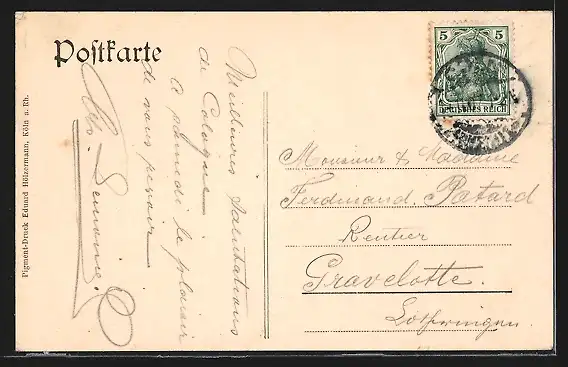 Postkarte
Meilleures Salutations
de Cologne
A samedi le plaisir
de vous revoir
Alfr. Lemoine
Pigment-Druck Eduard Hölzermann, Köln a. Rh.
5 5
DEUTSCHES REICH
Monsieur & Madame
Ferdinand Patard
Rentier
Gravelotte.
Lothringen